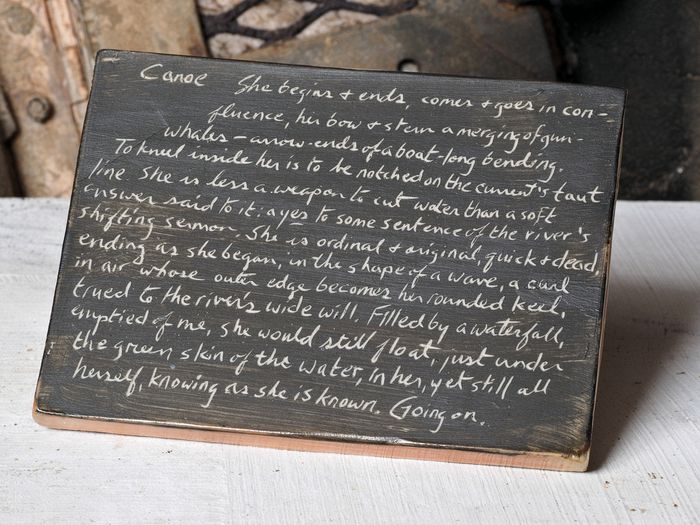 Canoe She begins & ends, comes & goes in con-
fluence, her bow & stern a merging of gun-
whales – arrow-ends of a boat-long bending.
To kneel inside her is to be notched on the current's taut
line. She is less a weapon to cut water than a soft
answer said to it: a yes to some sentence of the river's
shifting sermon. She is ordinal & original, quick & dead,
ending as she began, in the shape of a wave, a curl
in air whose outer edge becomes her rounded keel,
trued to the river's wide will. Filled by a waterfall,
emptied of me, she would still float, just under
the green skin of the water, in her, yet still all
herself, knowing as she is known. Going on.